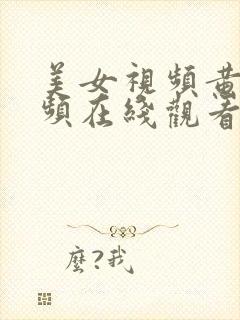 美女視頻黃
頻在綫觀看
麼?我